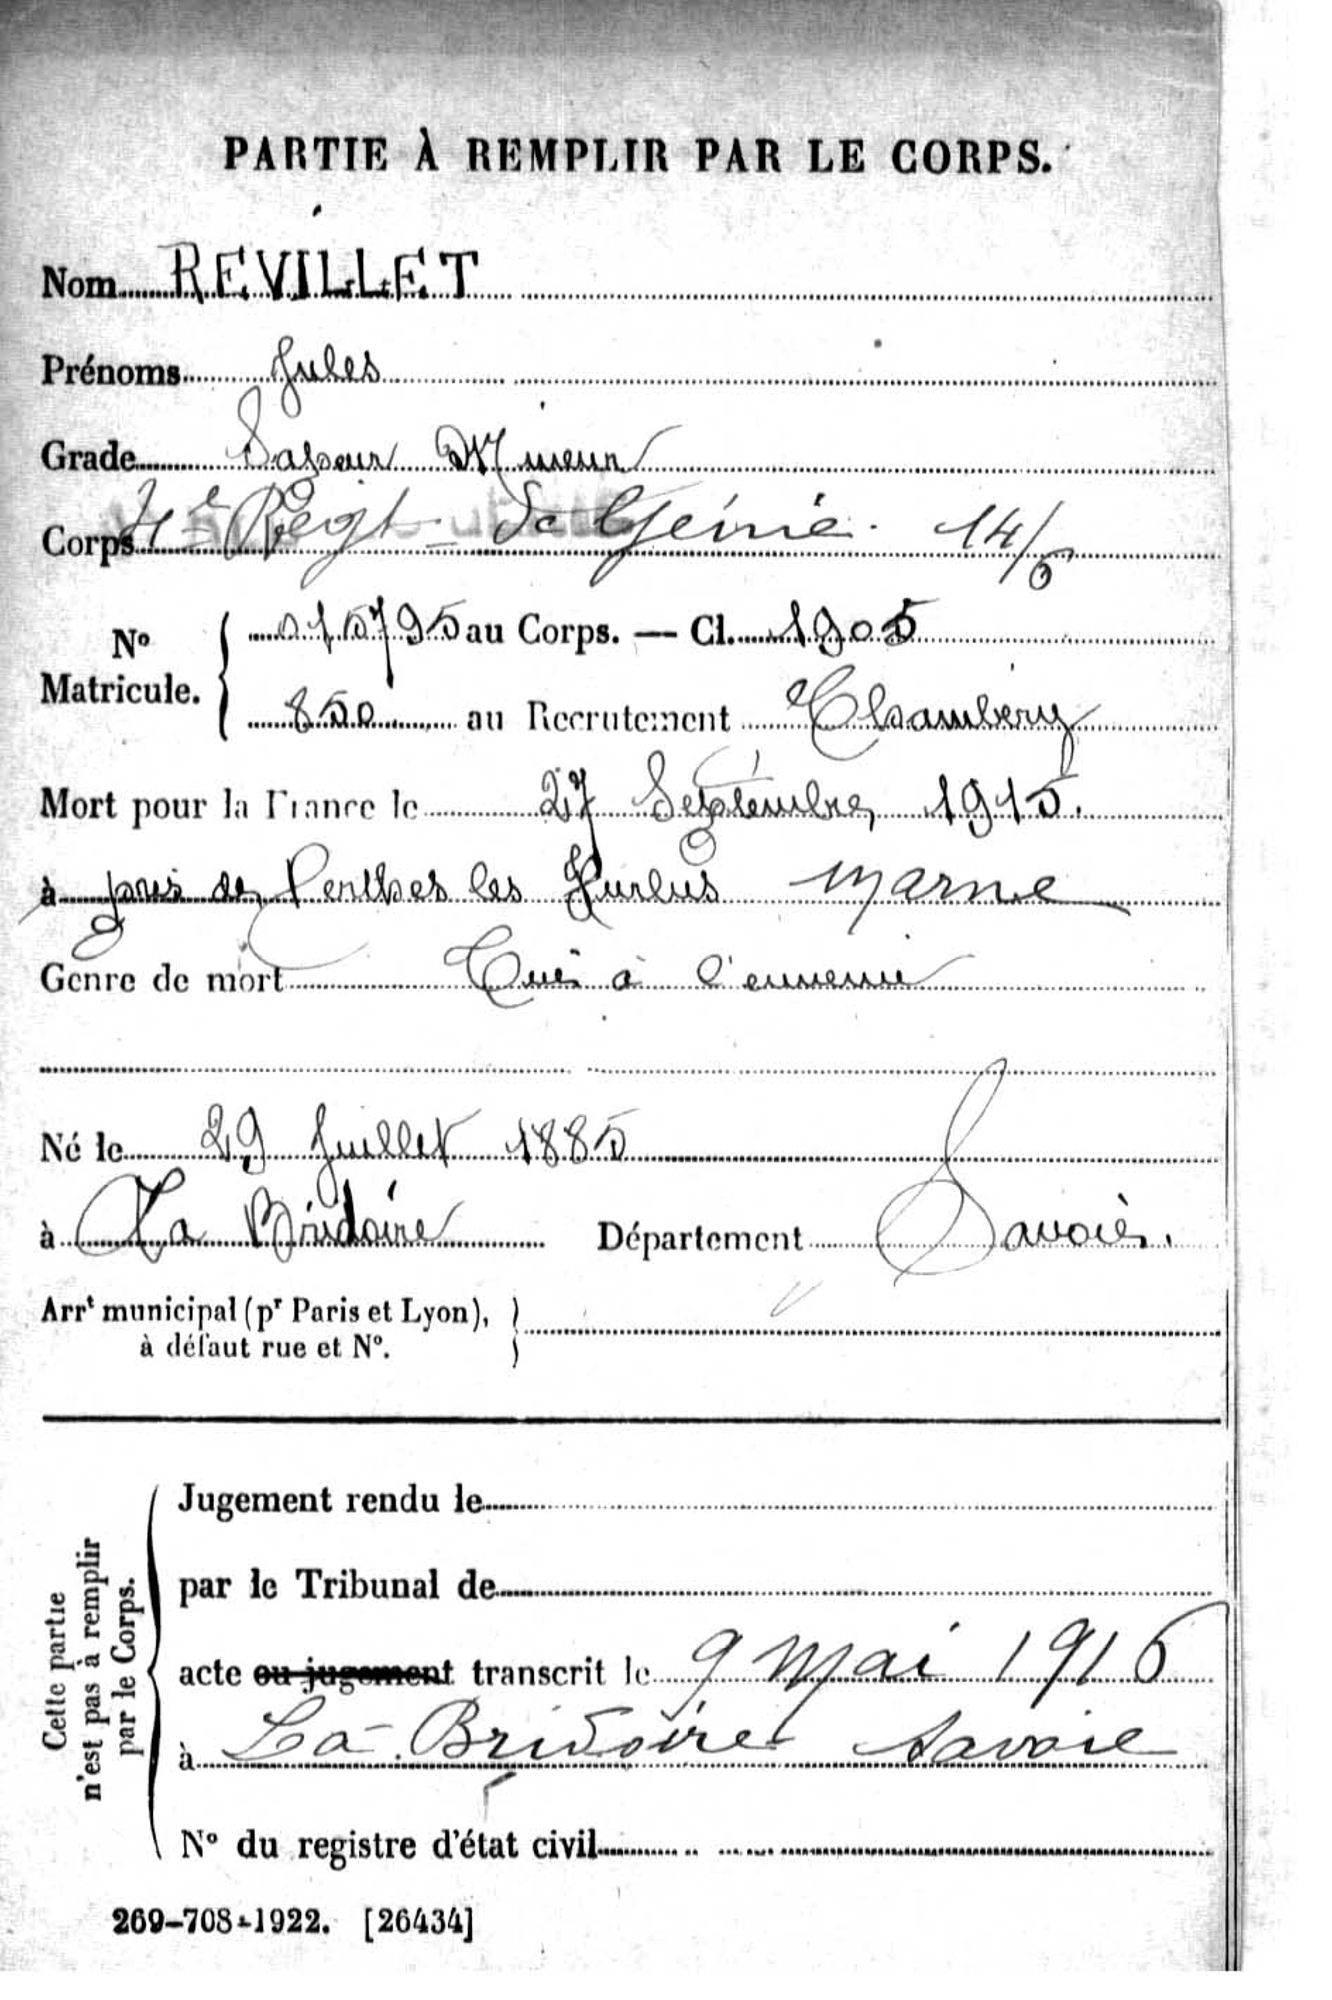 PARTIE À REMPLIR PAR LE CORPS.
Nom REVILLET
Prénoms Jules
Grade Sapeur Mineur
Corps 4e Régt de Génie. 14/6
N° Matricule. { 015795 au Corps. — Cl. 1905
850 au Recrutement Chambéry
Mort pour la France le 27 Septembre 1915.
à près de Perthes les Hurlus Marne
Genre de mort Tué à l'ennemi
Né le 29 Juillet 1885
à La Bridoire Département Savoie.
Arrt municipal (pr Paris et Lyon), }
à défaut rue et N°.
Cette partie n'est pas à remplir par le Corps.
Jugement rendu le
par le Tribunal de
acte ou jugement transcrit le 9 Mai 1916
à La Bridoire Savoie
N° du registre d'état civil
269-708-1922. [26434]